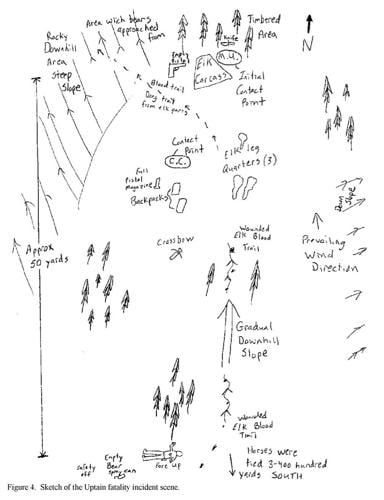 Area wich bears
approached
from
Timbered
Area
N
Rocky
Downhill
Area
Steep
Slope
Empty
Pistol
Knife
M.U.
Elk
Carcass
Initial
Contact
Point
Blood trail
Drag trail
from elk parts
Contact
Point
C.C.
Elk leg
Quarters (3)
Full
Pistol
Magazine
Backpacks
Down
Slope
Prevailing
Wind
Direction
Approx
50 yards
Crossbow
Wounded
Elk Blood
Trail
Gradual
Downhill
Slope
Wounded
Elk Blood
Trail
Safety
off
Empty
Bear
spray can
Face Up
Horses were
tied 3-400 hundred
yards SOUTH
Figure 4. Sketch of the Uptain fatality incident scene.